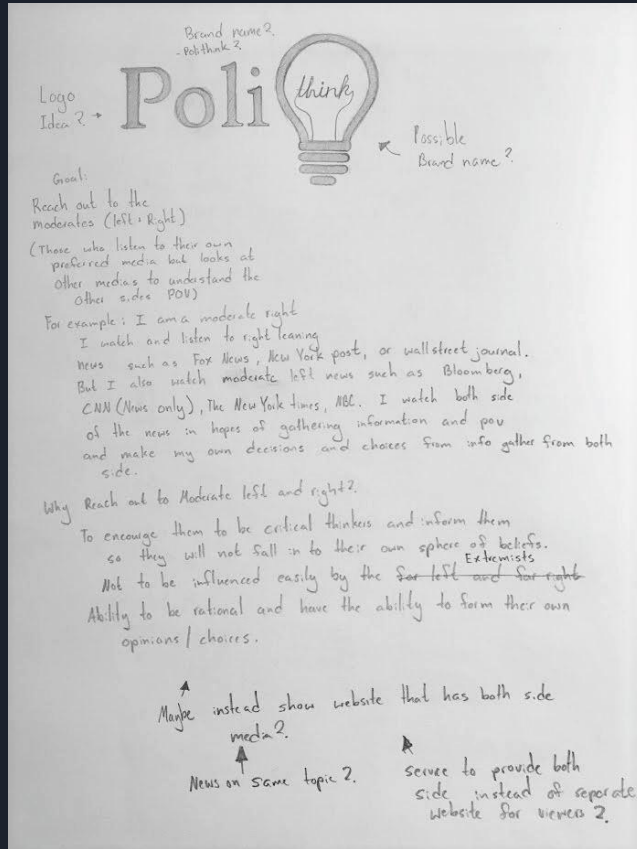 Brand name?
- Polithink?
Poli think
Logo
Idea?
Possible
Brand name?
Goal:
Reach out to the
moderates (left & Right)
(Those who listen to their own
preferred media but looks at
other medias to understand the
other sides POV)
For example: I am a moderate right
I watch and listen to right leaning
news such as Fox News, New York post, or wallstreet journal.
But I also watch moderate left news such as Bloomberg,
CNN (News only), The New York times, NBC. I watch both side
of the news in hopes of gathering information and pov
and make my own decisions and choices from info gather from both
side.
Why Reach out to Moderate left and right?
To encouge them to be critical thinkers and inform them
so they will not fall in to their own sphere of beliefs.
Extremists
Not to be influenced easily by the far left and far right
Ability to be rational and have the ability to form their own
opinions / choices.
Maybe instead show website that has both side
media?
News on same topic?
serves to provide both
side instead of seporate
website for viewers?